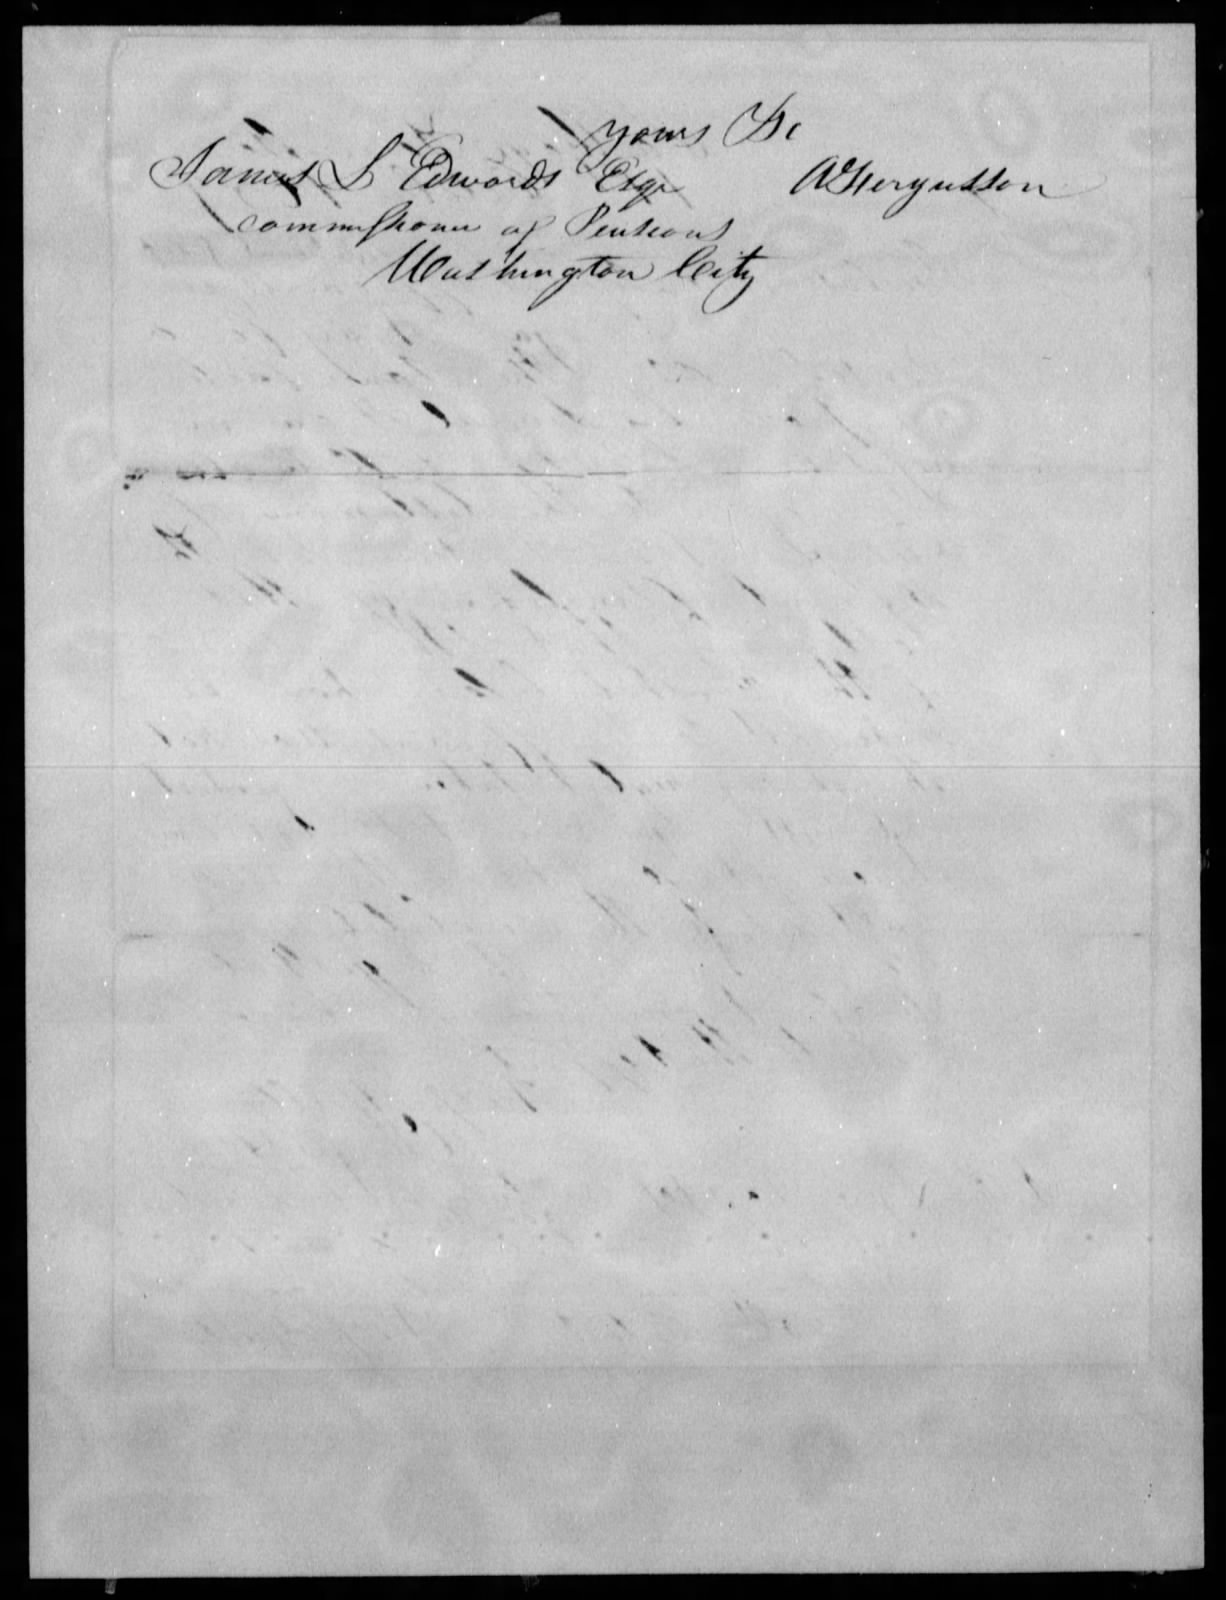 yours &c
James L Edwards Esqr A Fergusson
commissioner of Pensions
Washington City